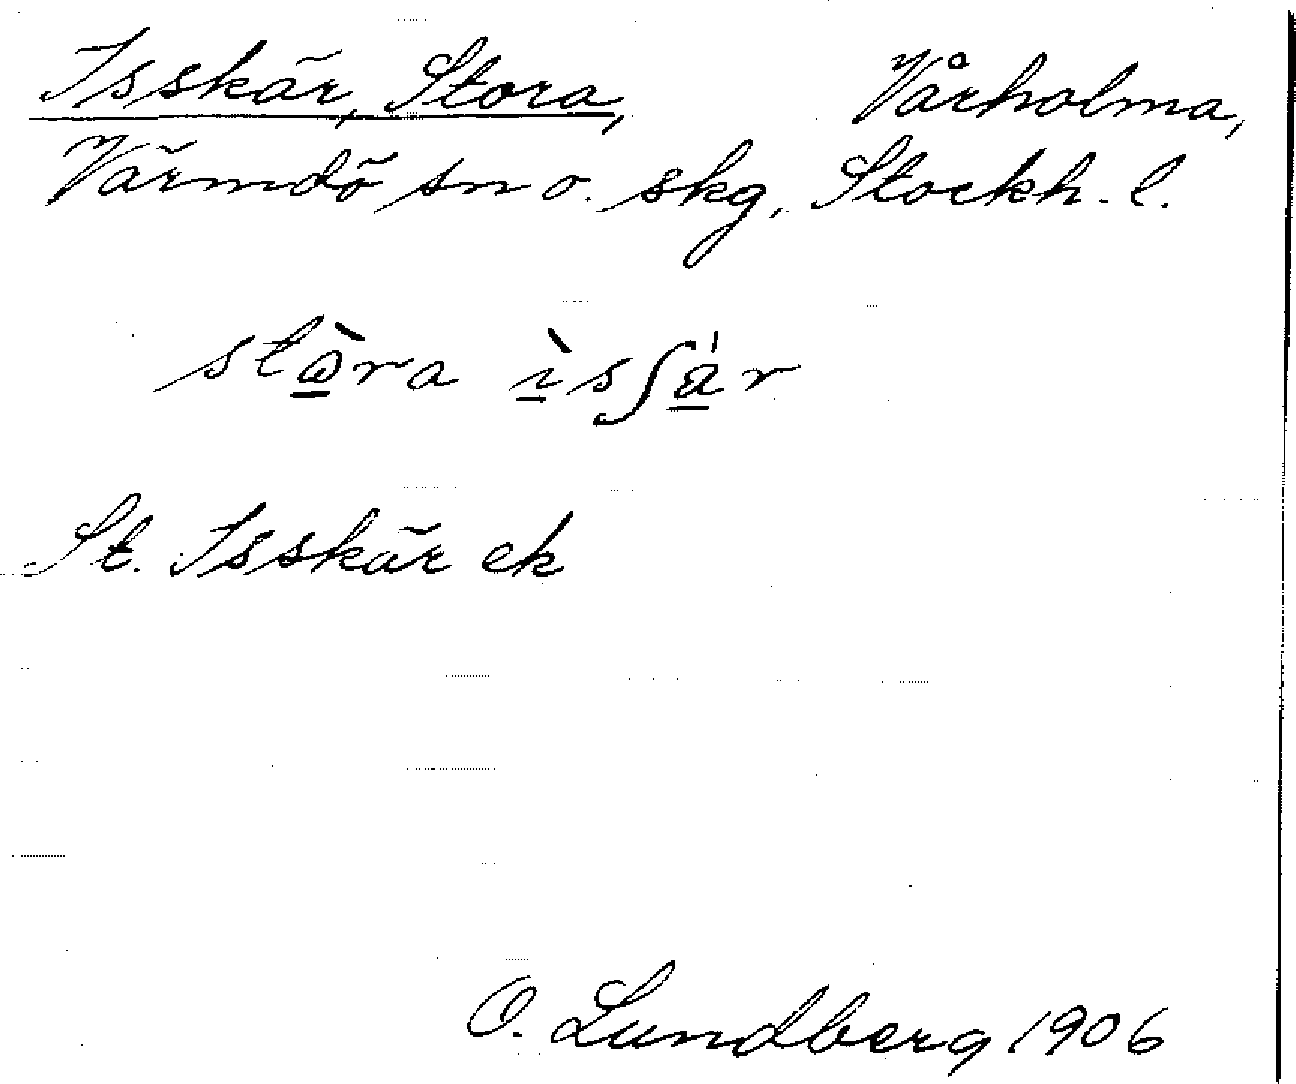 Isskär, Stora, Vårholma,
Värmdö sn o. skg, Stockh. l.
stὼ̲ra ı̲̀sʃä̲́r
St. Isskär ek
O. Lundberg 1906